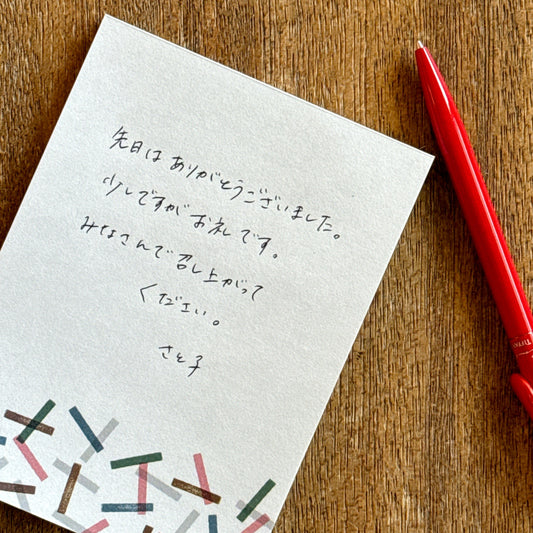 先日は ありがとうございました。
少しですが お礼です。
みなさんで 召し上がって
ください。
さと子